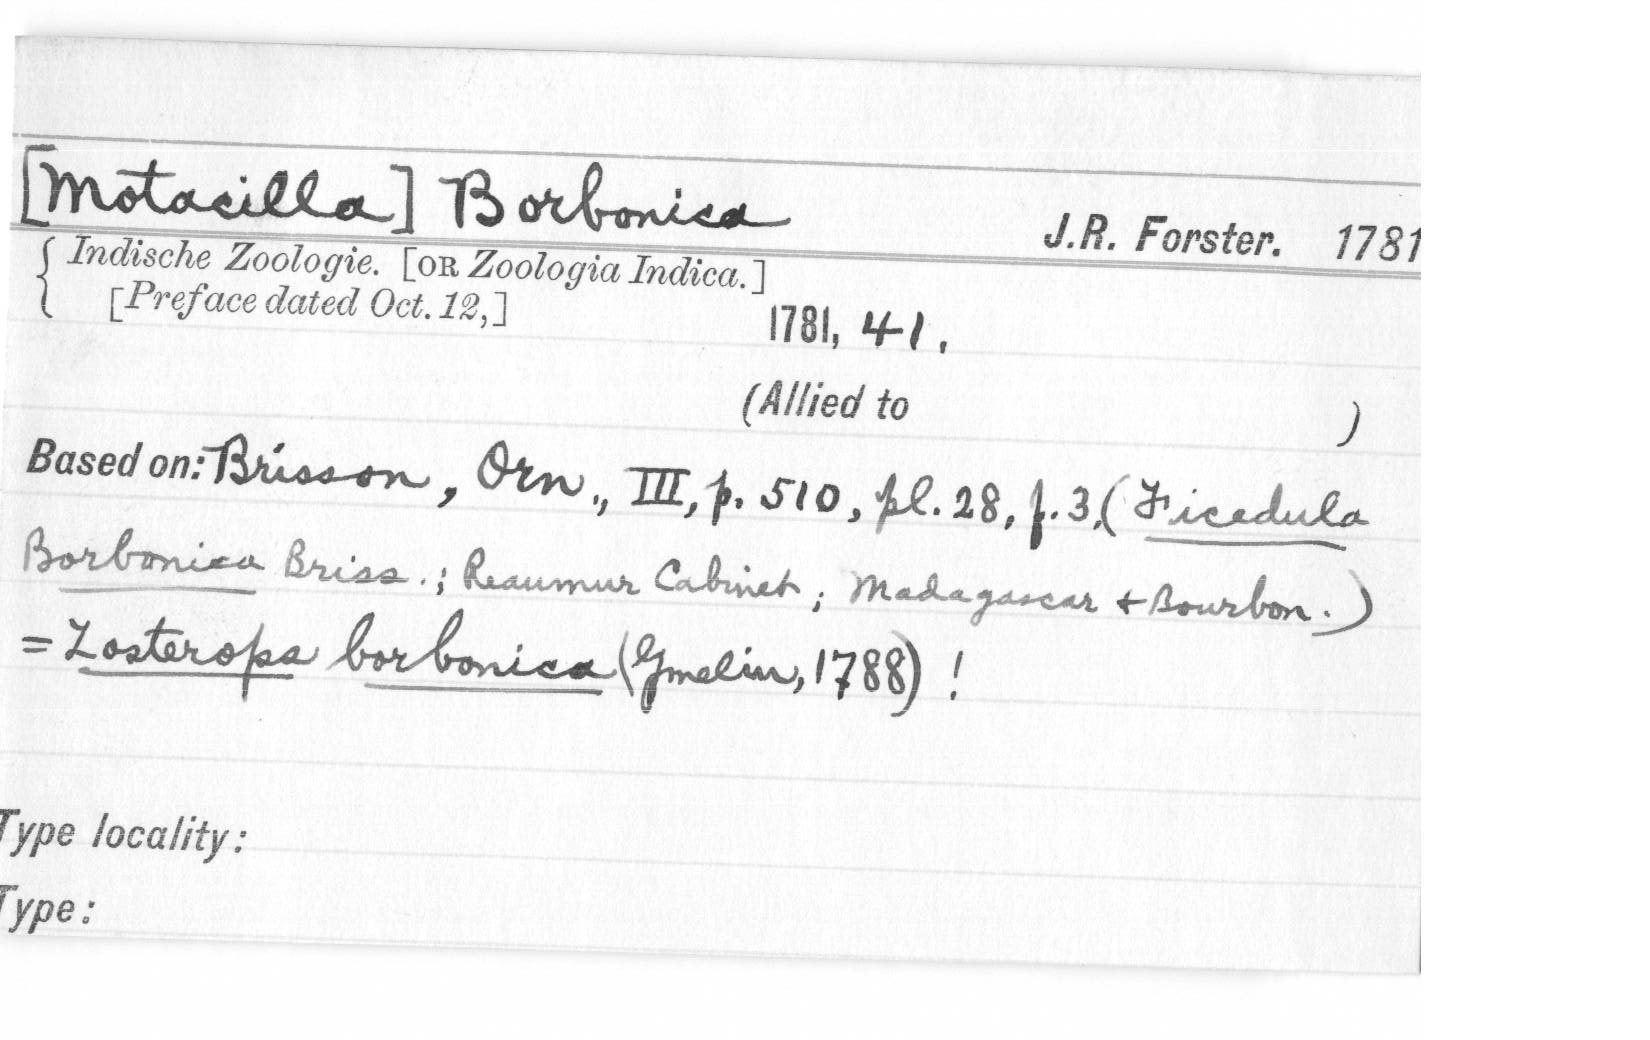 [Motacilla] Borbonica J.R. Forster. 1781
{ Indische Zoologie. [OR Zoologia Indica.]
[Preface dated Oct. 12,]
1781, 41.
(Allied to )
Based on: Brisson, Orn., III, p. 510, pl. 28, f. 3, (Ficedula
Borbonica Briss.; Reaumur Cabinet; Madagascar + Bourbon.)
= Zosterops borbonica (Gmelin, 1788) !
Type locality:
Type: